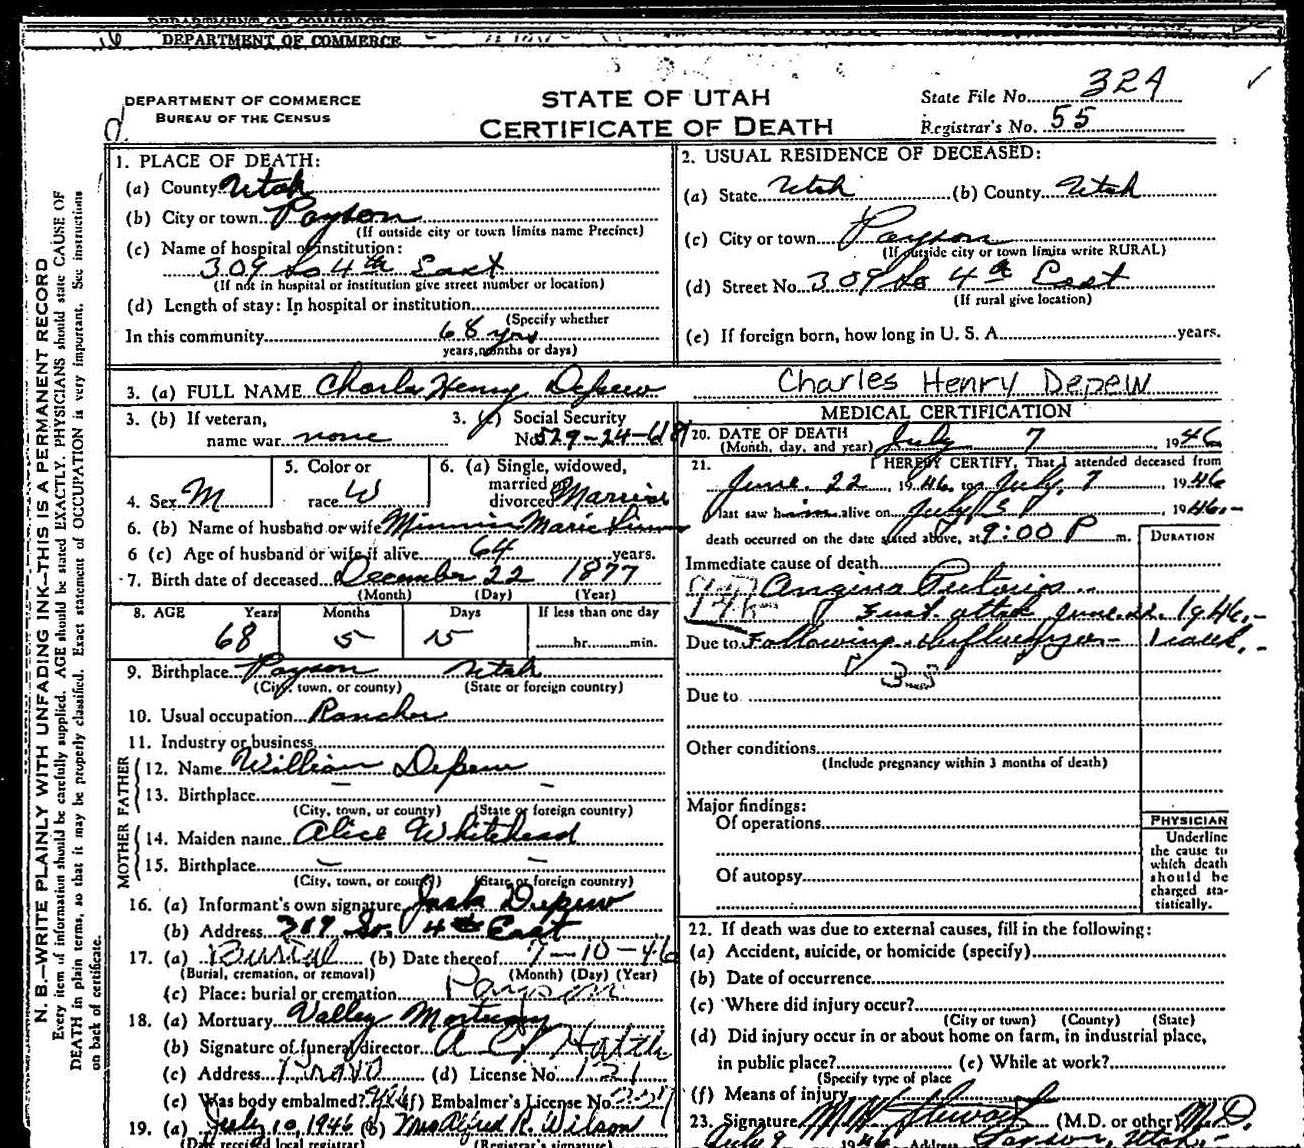 DEPARTMENT OF COMMERCE
DEPARTMENT OF COMMERCE
BUREAU OF THE CENSUS
STATE OF UTAH
CERTIFICATE OF DEATH
State File No. 324
Registrar's No. 55
N. B.—WRITE PLAINLY WITH UNFADING INK—THIS IS A PERMANENT RECORD
Every item of information should be carefully supplied. AGE should be stated EXACTLY. PHYSICIANS should state CAUSE OF
DEATH in plain terms, so that it may be properly classified. Exact statement of OCCUPATION is very important. See instructions
on back of certificate.
1. PLACE OF DEATH:
(a) County Utah
(b) City or town Payson
(If outside city or town limits name Precinct)
(c) Name of hospital or institution:
309 So 4th East
(If not in hospital or institution give street number or location)
(d) Length of stay: In hospital or institution
(Specify whether
In this community 68 yrs
years, months or days)
2. USUAL RESIDENCE OF DECEASED:
(a) State Utah (b) County Utah
(c) City or town Payson
(If outside city or town limits write RURAL)
(d) Street No. 309 So 4th East
(If rural give location)
(e) If foreign born, how long in U. S. A. years.
3. (a) FULL NAME Charles Henry Depew
Charles Henry Depew
3. (b) If veteran,
name war none
3. (c) Social Security
No. 529-24-6181
4. Sex M
5. Color or
race W
6. (a) Single, widowed,
married or
divorced Married
6. (b) Name of husband or wife Minnie Marie
6 (c) Age of husband or wife if alive 64 years.
7. Birth date of deceased December 22 1877
(Month) (Day) (Year)
8. AGE Years Months Days If less than one day
68 5 15 hr. min.
9. Birthplace Payson Utah
(City, town, or county) (State or foreign country)
10. Usual occupation Rancher
11. Industry or business
FATHER
12. Name William Depew
13. Birthplace — —
(City, town, or county) (State or foreign country)
MOTHER
14. Maiden name Alice Whitehead
15. Birthplace — —
(City, town, or county) (State or foreign country)
16. (a) Informant's own signature Jack Depew
(b) Address 309 So. 4th East
17. (a) Burial (b) Date thereof 7-10-46
(Burial, cremation, or removal) (Month) (Day) (Year)
(c) Place: burial or cremation Payson
18. (a) Mortuary Valley Mortuary
(b) Signature of funeral director A
(c) Address Provo (d) License No. 121
(e) Was body embalmed? Yes (f) Embalmer's License No.
19. (a) July 10, 1946 (b) Mrs Alfred R. Wilson
(Date received local registrar) (Registrar's signature)
MEDICAL CERTIFICATION
20. DATE OF DEATH
(Month, day, and year) July 7 1946
21. I HEREBY CERTIFY, That I attended deceased from
June 22, 1946, to July 7 1946
last saw him alive on July 5 1946
death occurred on the date stated above, at 9:00 P m.
DURATION
Immediate cause of death
Angina Pectoris
First attack June 22 1946
Due to Following Influenza
Due to
Other conditions
(Include pregnancy within 3 months of death)
Major findings:
Of operations
Of autopsy
PHYSICIAN
Underline
the cause to
which death
should be
charged sta-
tistically.
22. If death was due to external causes, fill in the following:
(a) Accident, suicide, or homicide (specify)
(b) Date of occurrence
(c) Where did injury occur?
(City or town) (County) (State)
(d) Did injury occur in or about home on farm, in industrial place,
in public place? (e) While at work?
(Specify type of place
(f) Means of injury
23. Signature M. W. Stewart (M.D. or other) M.D.
July 9 1946 Address Payson, Utah